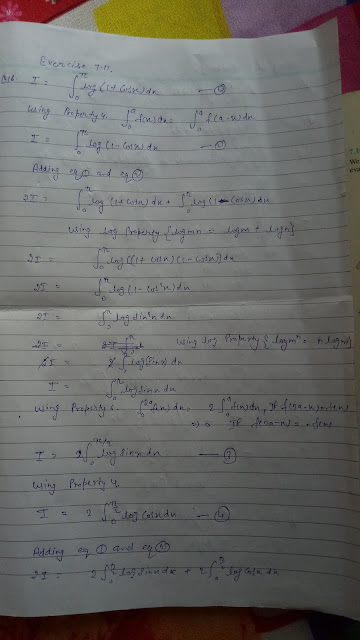 Exercise 7.11.
Q.16. I = ∫₀^π log (1+ cosx) dx — ①
Using Property 4. ∫₀^a f(x) dx = ∫₀^a f(a-x) dx
I = ∫₀^π log (1- cosx) dx — ②
Adding eq ① and eq ②
2I = ∫₀^π log (1+ cosx) dx + ∫₀^π log (1- cosx) dx
Using log Property { logmn = logm + logn}
2I = ∫₀^π log [(1+ cosx) (1- cosx)] dx
2I = ∫₀^π log (1- cos²x) dx
2I = ∫₀^π log sin²x dx
Using log Property { logmⁿ = n logm}
2I = 2 ∫₀^π log(sinx) dx
I = ∫₀^π log sinx dx
Using Property 6. ∫₀^2a f(x) dx, 2 ∫₀^a f(x) dx, If f(2a-x) = f(x)
If f(2a-x) = - f(x)
I = 2 ∫₀^π/2 log sinx dx — ③
Using Property 4.
I = 2 ∫₀^π/2 log cosx dx — ④
Adding eq ③ and eq ④
2I = 2 ∫₀^π/2 log sinx dx + 2 ∫₀^π/2 log cosx dx